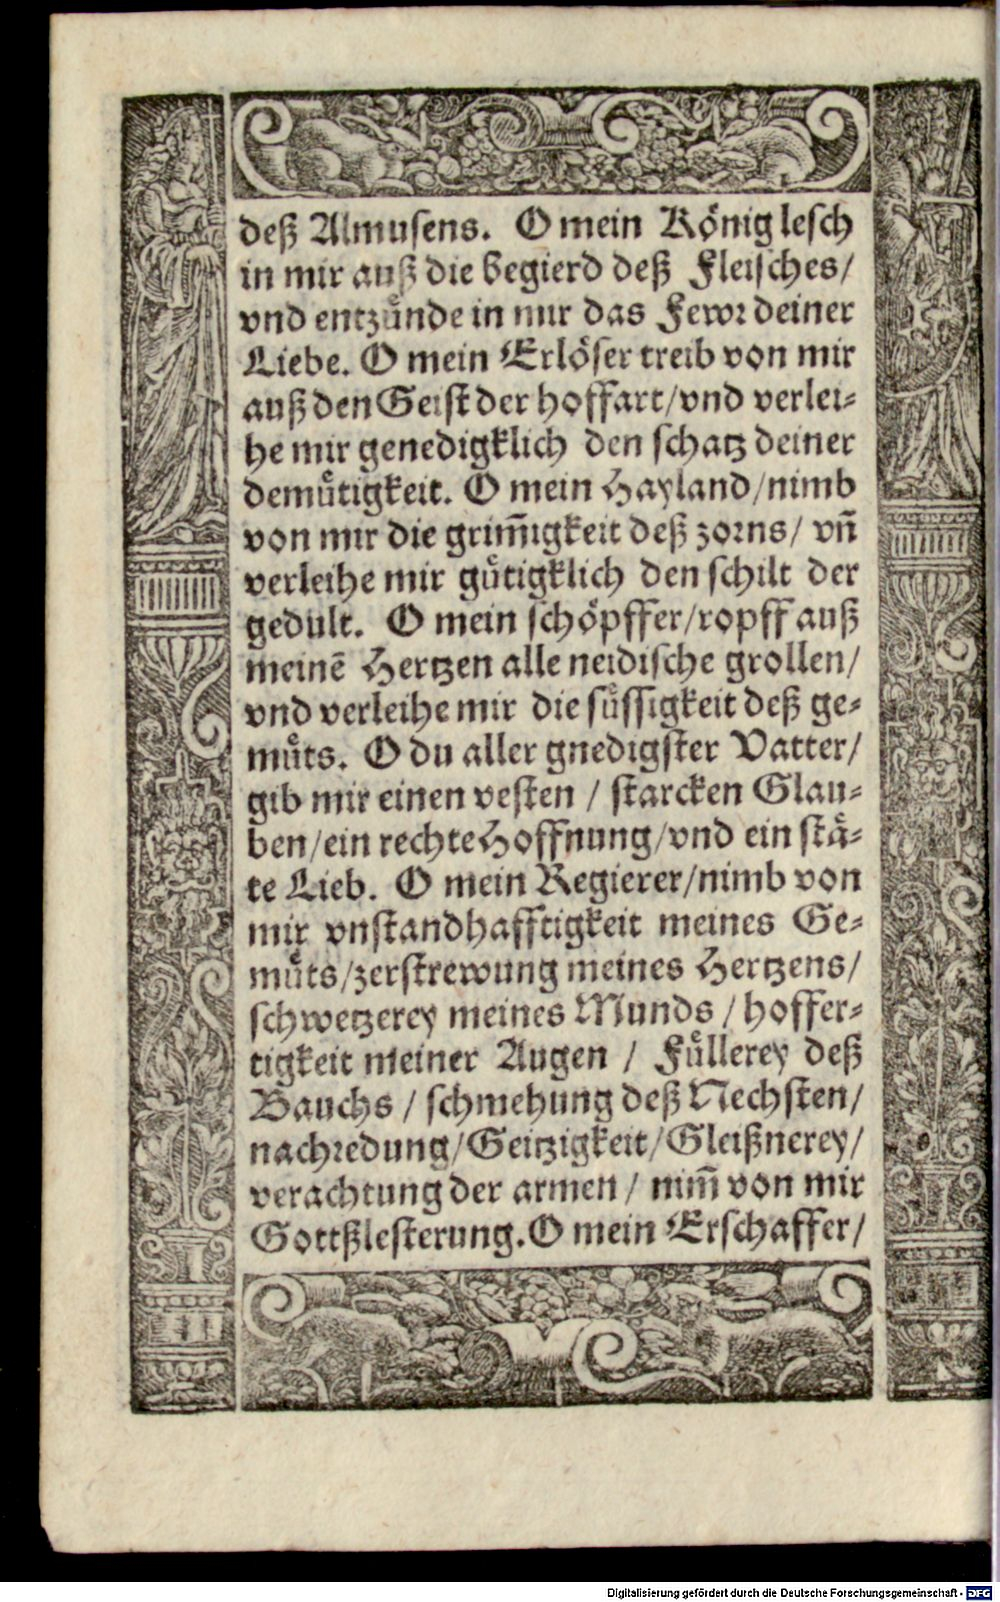 deß Almusens. O mein König lesch
in mir auß die begierd deß Fleisches/
vnd entzünde in mir das Fewr deiner
Liebe. O mein Erlöser treib von mir
auß den Geist der hoffart/vnd verlei⸗
he mir genedigklich den schatz deiner
demütigkeit. O mein Hayland/nimb
von mir die grim̄igkeit deß zorns/ vn̄
verleihe mir gütigklich den schilt der
gedult. O mein schöpffer/ropff auß
meinē Hertzen alle neidische grollen/
vnd verleihe mir die süssigkeit deß ge⸗
müts. O du aller gnedigster Vatter/
gib mir einen vesten / starcken Glau⸗
ben/ein rechte Hoffnung/vnd ein stä⸗
te Lieb. O mein Regierer/nimb von
mir vnstandhafftigkeit meines Ge⸗
müts/zerstrewung meines Hertzens/
schwetzerey meines Munds / hoffer⸗
tigkeit meiner Augen / Füllerey deß
Bauchs / schmehung deß Nechsten/
nachredung/Geitzigkeit/Gleißnerey/
verachtung der armen / nim̄ von mir
Gottßlesterung. O mein Erschaffer/
Digitalisierung gefördert durch die Deutsche Forschungsgemeinschaft - DFG